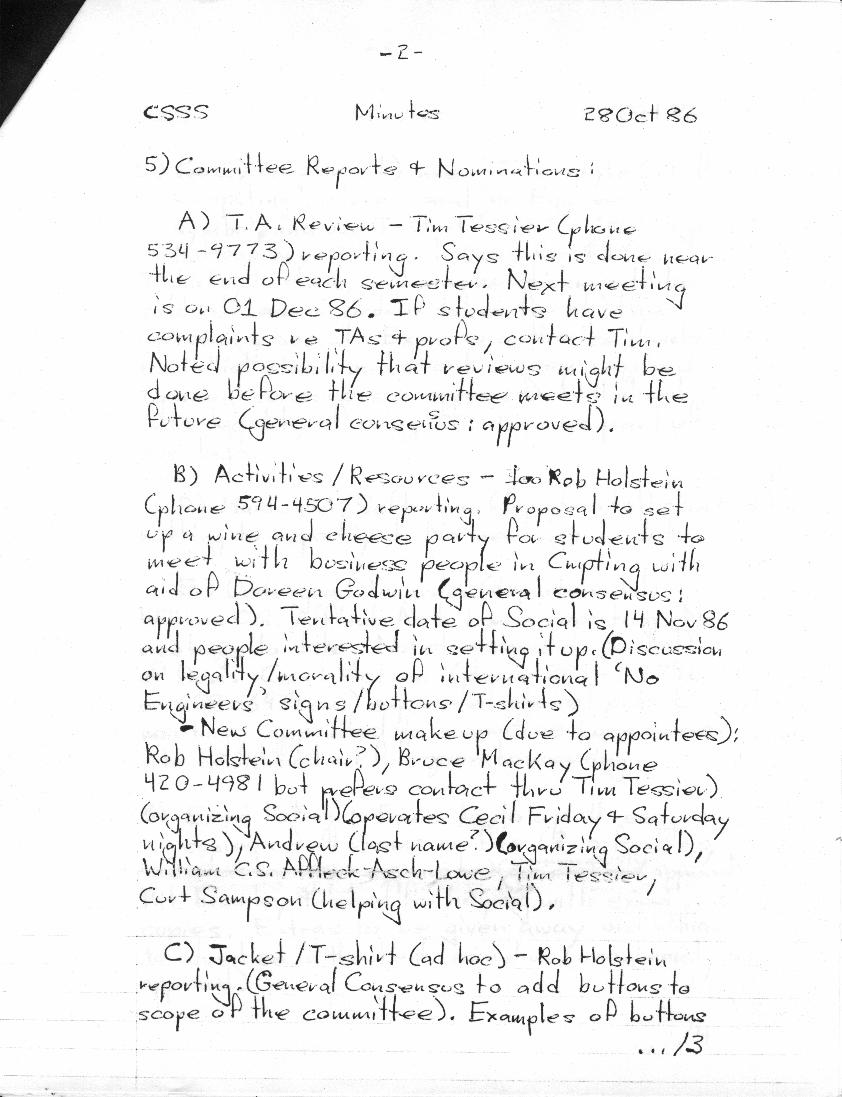 -2-
CSSS Minutes 28 Oct 86
5) Committee Reports & Nominations:
A) T.A. Review - Tim Tessier (phone
534-9773) reporting. Says this is done near
the end of each semester. Next meeting
is on 01 Dec 86. If students have
complaints re TAs & profs, contact Tim.
Noted possibility that reviews might be
done before the committee meets in the
future (general consensus: approved).
B) Activities/Resources - Rob Holstein
(phone 594-4507) reporting. Proposal to set
up a wine and cheese party for students to
meet with business people in Cmpting with
aid of Doreen Godwin (general consensus:
approved). Tentative date of Social is 14 Nov 86
and people interested in setting it up. (Discussion
on legality/morality of international 'No
Engineers' signs/buttons/T-shirts)
- New Committee makeup (due to appointees):
Rob Holstein (chair?), Bruce MacKay (phone
420-4981 but prefers contact thru Tim Tessier)
(organizing Social) (operates Cecil Friday & Saturday
nights), Andrew (last name?) (organizing Social),
William C.S. Affleck-Asch-Lowe, Tim Tessier,
Curt Sampson (helping with Social).
C) Jacket/T-shirt (ad hoc) - Rob Holstein
reporting. (General Consensus to add buttons to
scope of the committee). Examples of buttons
.../3